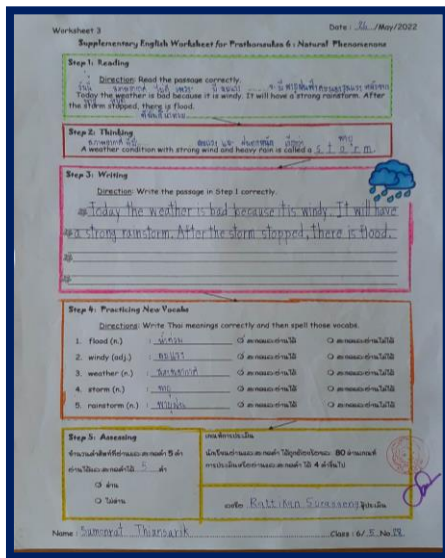 Worksheet 3
Date : 24 /May/2022
Supplementary English Worksheet for Prathomsuksa 6 : Natural Phenomenons
Step 1: Reading
Direction: Read the passage correctly.
Today the weather is bad because it is windy. It will have a strong rainstorm. After
the storm stopped, there is flood.
Step 2: Thinking
A weather condition with strong wind and heavy rain is called a s t a r m.
Step 3: Writing
Direction: Write the passage in Step 1 correctly.
Today the weather is bad because it is windy. It will have
a strong rainstorm. After the storm stopped, there is flood.
Step 4: Practicing New Vocabs
Directions: Write Thai meanings correctly and then spell those vocabs.
1. flood (n.) : น้ำท่วม สะกดและอ่านได้ สะกดและอ่านไม่ได้
2. windy (adj.) : ลมแรง สะกดและอ่านได้ สะกดและอ่านไม่ได้
3. weather (n.) : สภาพอากาศ สะกดและอ่านได้ สะกดและอ่านไม่ได้
4. storm (n.) : พายุ สะกดและอ่านได้ สะกดและอ่านไม่ได้
5. rainstorm (n.) : พายุฝน สะกดและอ่านได้ สะกดและอ่านไม่ได้
Step 5: Assessing
จำนวนคำศัพท์ที่อ่านและสะกดคำ 5 คำ
อ่านได้และสะกดคำได้ 5 คำ
ผ่าน
ไม่ผ่าน
เกณฑ์การประเมิน
นักเรียนอ่านและสะกดคำ ได้ถูกต้องร้อยละ 80 ผ่านเกณฑ์
การประเมินหรืออ่านและสะกดคำ ได้ 4 คำขึ้นไป
ลงชื่อ ผู้ประเมิน
Name : Class : 6/5 No.28